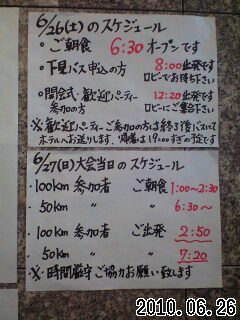 6/26(土)のスケジュール
・ご朝食 6:30 オープンです
・下見バス申込の方 8:00出発です
ロビーでお待ち下さい
・開会式・歓迎パーティー 12:20出発です
参加の方 ロビーにご集合下さい
※歓迎パーティーご参加の方は終了後バスにて
ホテルへお送りします。帰着は19:00すぎの予定です
6/27(日)大会当日のスケジュール
・100km 参加者 ご朝食 1:00~2:30
・50km 〃 〃 6:30~
・100km 参加者 ご出発 2:50
50km 〃 〃 7:20
※時間厳守ご協力お願い致します
2010.06.26